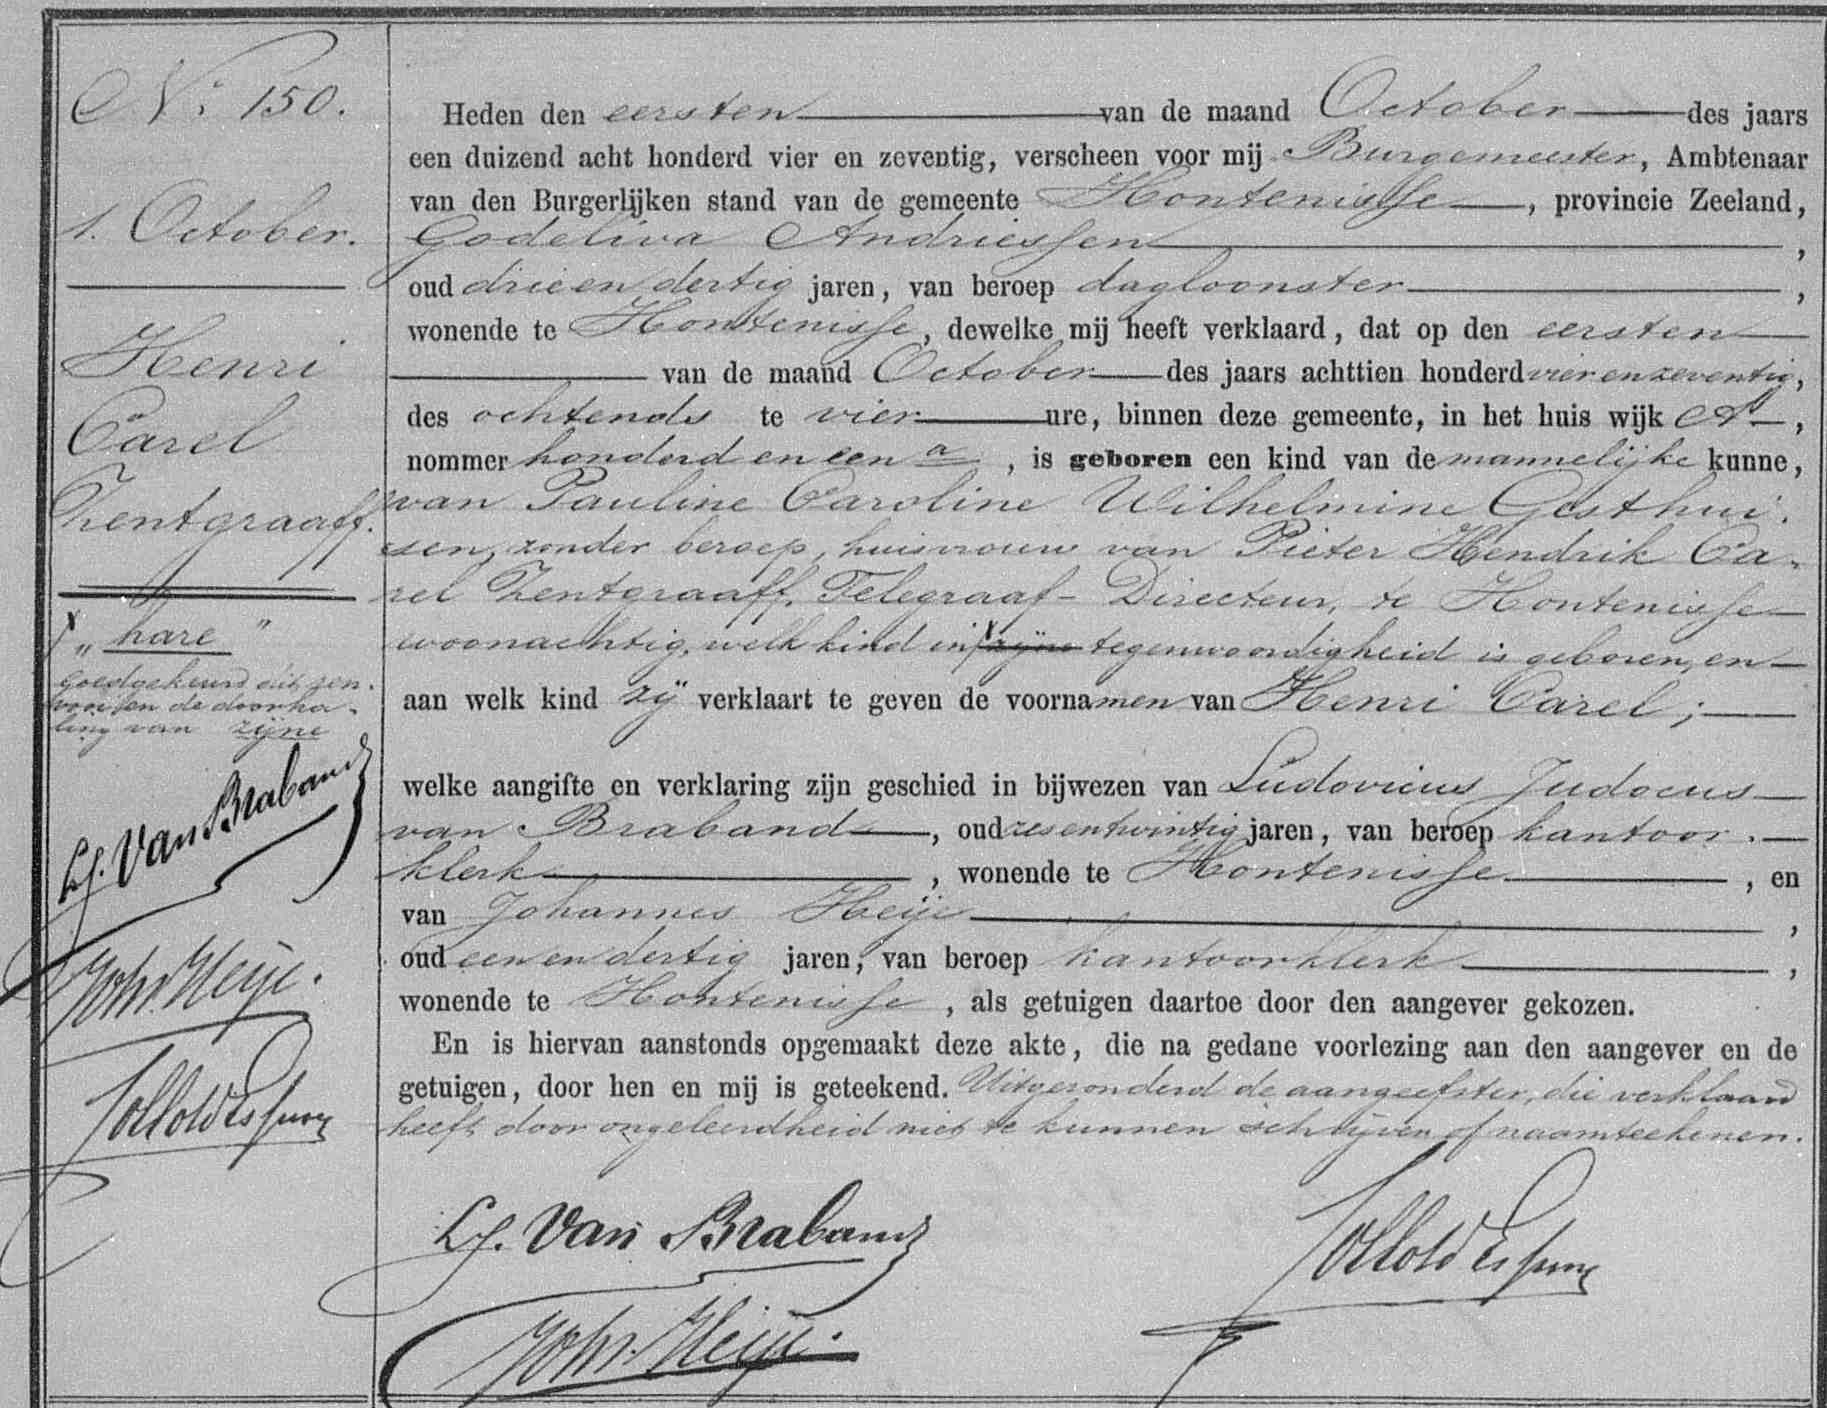 No. 150.
1. October.
Henri
Carel
Zentgraaff.
„ hare "
goedgekeurd dit ren-
vooi en de doorha-
ling van zijne
L.J. Van Braband
Joh. Heije.
Heden den eersten van de maand October des jaars
een duizend acht honderd vier en zeventig, verscheen voor mij Burgemeester, Ambtenaar
van den Burgerlijken stand van de gemeente Hontenisse, provincie Zeeland,
Godeliva Andriessen,
oud drie en dertig jaren, van beroep dagloonster,
wonende te Hontenisse, dewelke mij heeft verklaard, dat op den eersten
van de maand October des jaars achttien honderd vier en zeventig,
des ochtends te vier ure, binnen deze gemeente, in het huis wijk A,
nommer honderd en een a, is geboren een kind van de mannelijke kunne,
van Pauline Caroline Wilhelmine Gesthui-
sen, zonder beroep, huisvrouw van Pieter Hendrik Ca-
rel Zentgraaff, Telegraaf-Directeur, te Hontenisse
woonachtig, welk kind in zijne tegenwoordigheid is geboren, en
aan welk kind zij verklaart te geven de voornamen van Henri Carel;
welke aangifte en verklaring zijn geschied in bijwezen van Ludovicus Judocus
van Braband, oud zes en twintig jaren, van beroep kantoor-
klerk, wonende te Hontenisse, en
van Johannes Heije,
oud een en dertig jaren, van beroep kantoorklerk,
wonende te Hontenisse, als getuigen daartoe door den aangever gekozen.
En is hiervan aanstonds opgemaakt deze akte, die na gedane voorlezing aan den aangever en de
getuigen, door hen en mij is geteekend. Uitgezonderd de aangeefster, die verklaard
heeft door ongeleerdheid niet te kunnen schrijven of naamteekenen.
L.J. Van Braband
Joh. Heije.